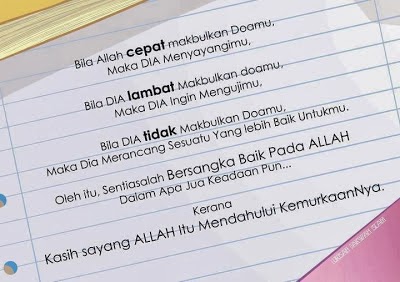 Bila Allah cepat makbulkan Doamu,
Maka DIA Menyayangimu,
Bila DIA lambat Makbulkan doamu,
Maka DIA Ingin Mengujimu,
Bila DIA tidak Makbulkan Doamu,
Maka Dia Merancang Sesuatu Yang lebih Baik Untukmu.
Oleh itu, Sentiasalah Bersangka Baik Pada ALLAH
Dalam Apa Jua Keadaan Pun...
Kerana
Kasih sayang ALLAH Itu Mendahului KemurkaanNya.